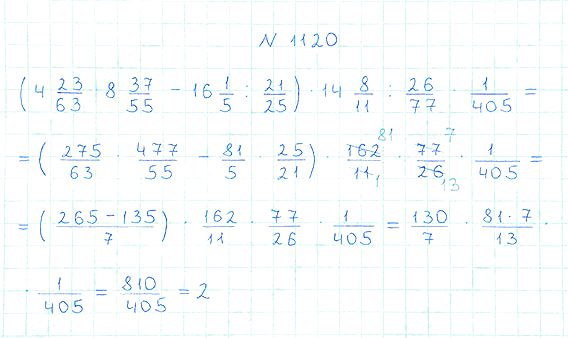 N 1120
(4 23/63 · 8 37/55 − 16 1/5 : 21/25) · 14 8/11 : 26/77 · 1/405 =
= (275/63 · 477/55 − 81/5 · 25/21) · 162/11 81 1 · 77/26 7 13 · 1/405 =
= (265 − 135/7) · 162/11 · 77/26 · 1/405 = 130/7 · 81 · 7/13 ·
· 1/405 = 810/405 = 2